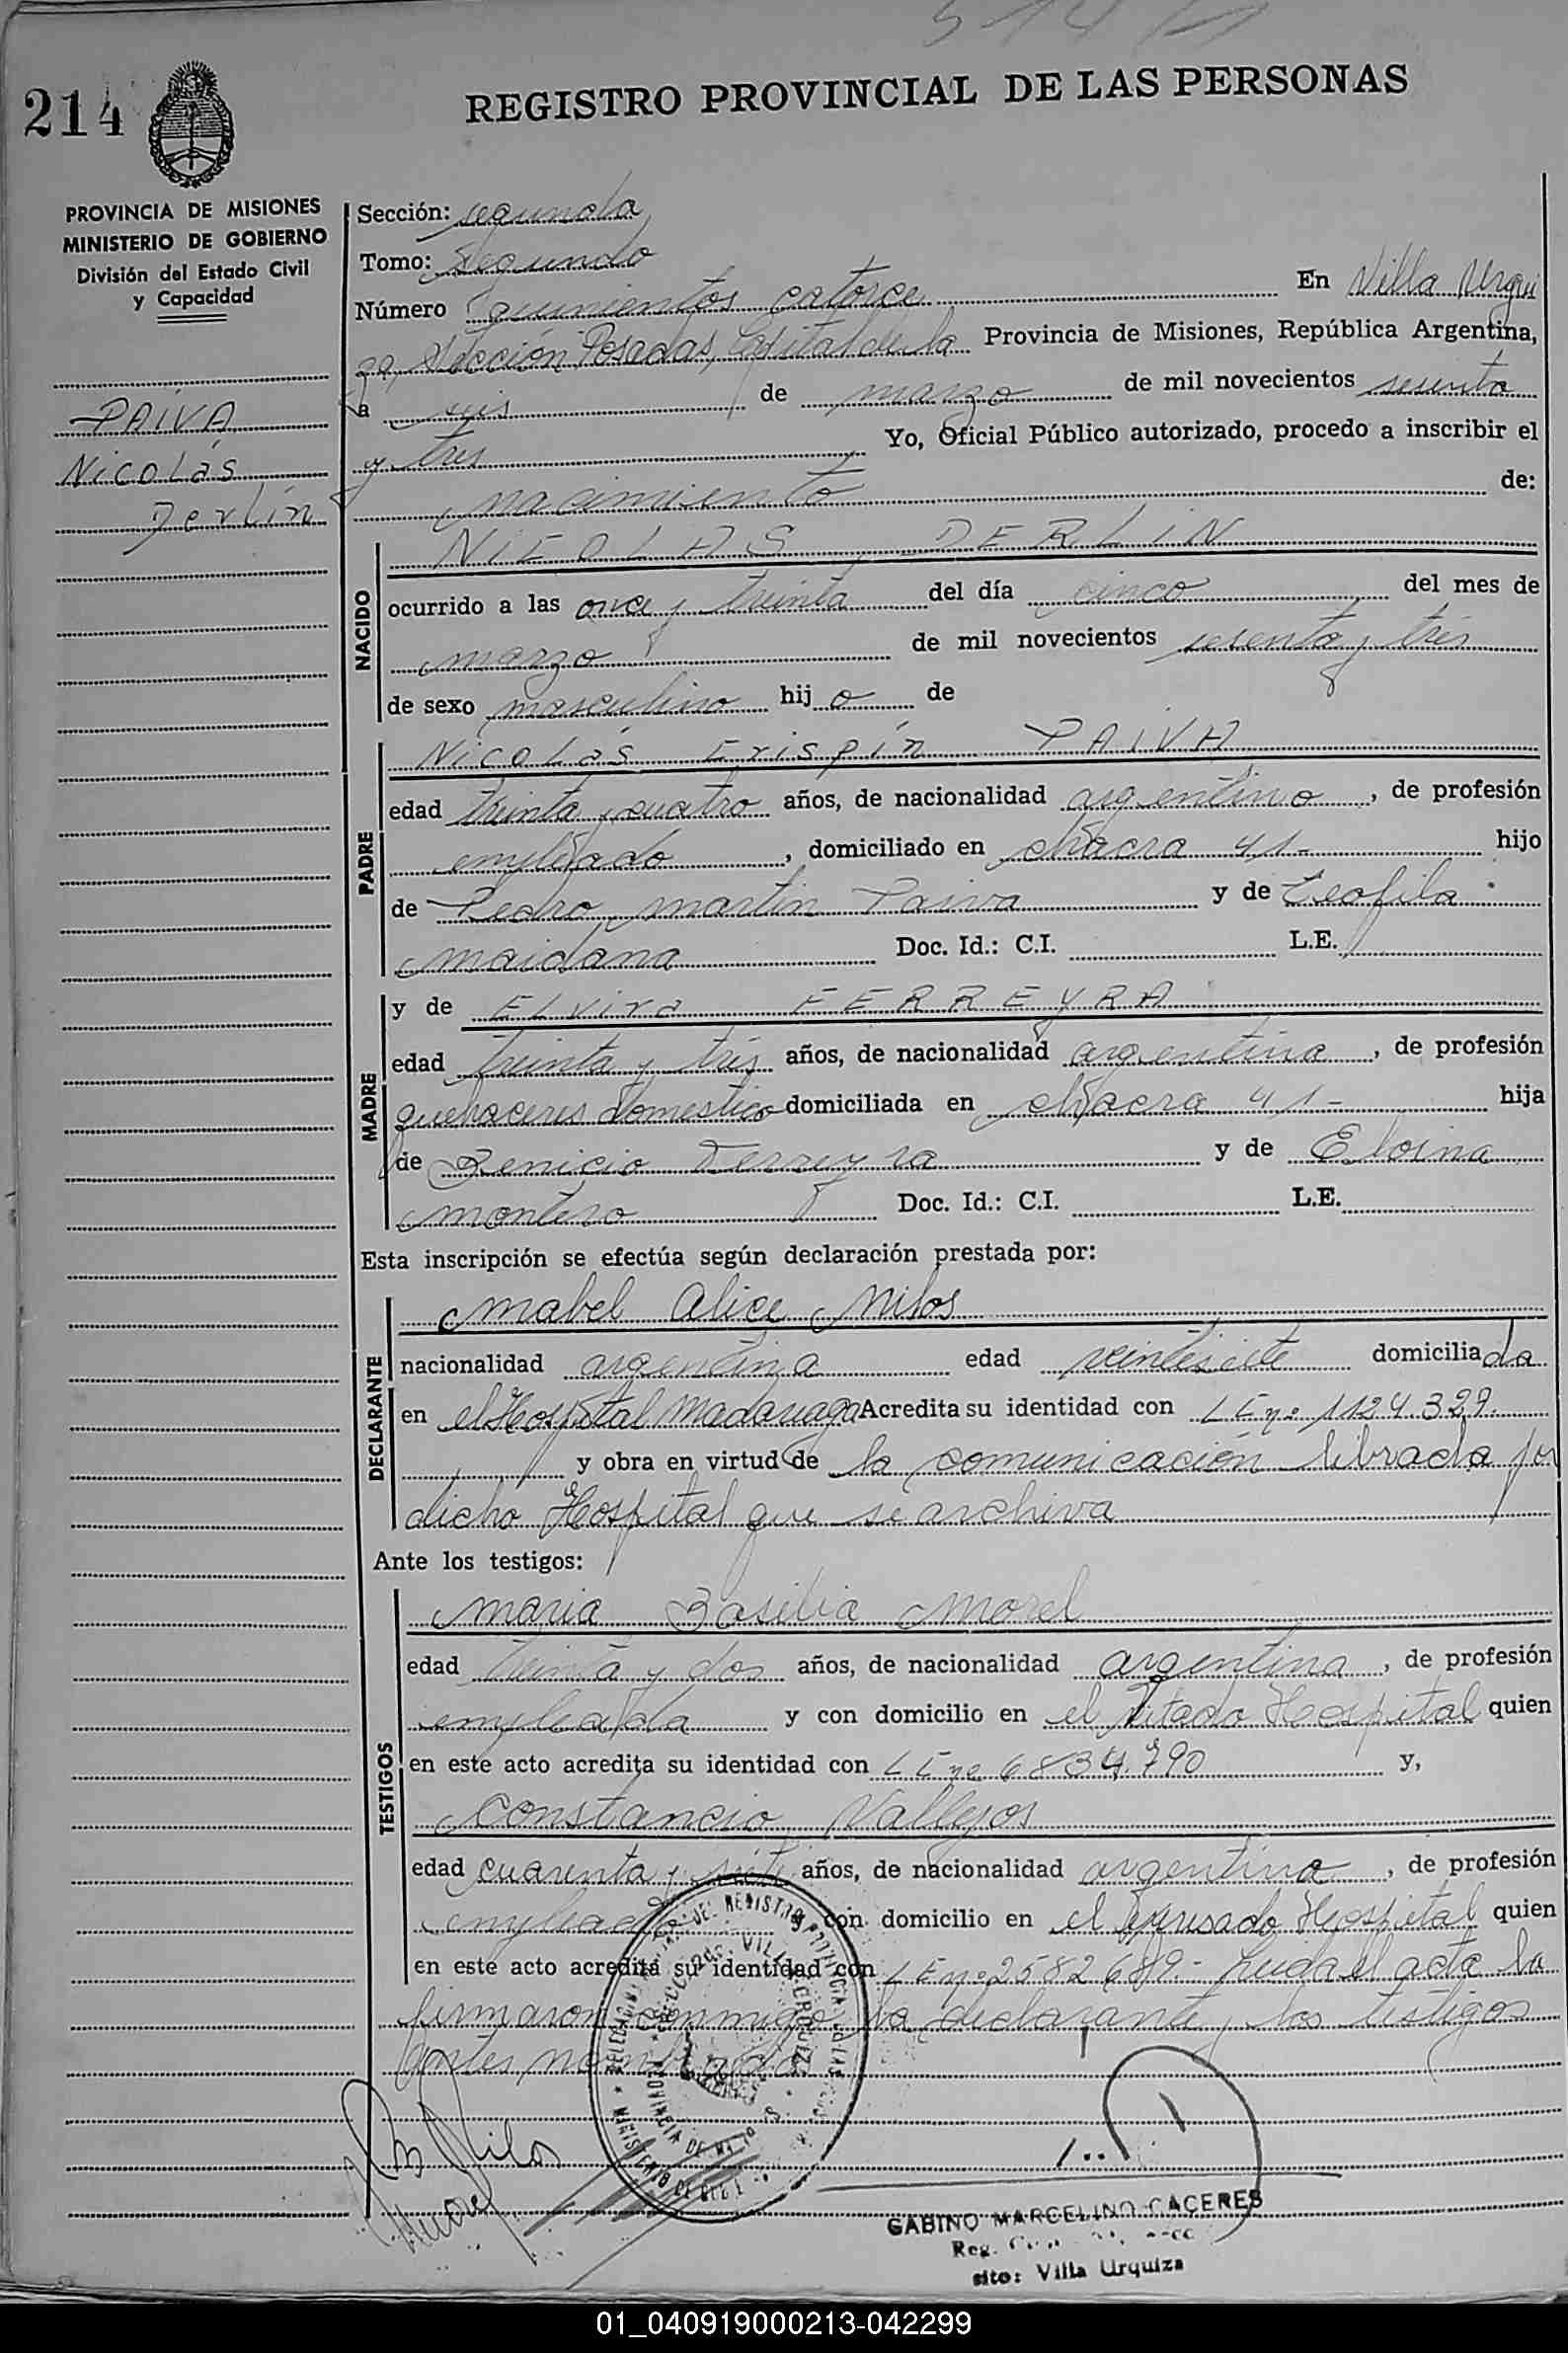 514
214
REGISTRO PROVINCIAL DE LAS PERSONAS
PROVINCIA DE MISIONES
MINISTERIO DE GOBIERNO
División del Estado Civil
y Capacidad
PAIVA
Nicolás
Derlín
Sección: segunda
Tomo: Segundo
Número quinientos catorce En Villa Urqui
za, Sección Posadas, Capital de la Provincia de Misiones, República Argentina,
a seis de marzo de mil novecientos sesenta
y tres Yo, Oficial Público autorizado, procedo a inscribir el
nacimiento de:
NACIDO
NICOLAS DERLIN
ocurrido a las once y treinta del día cinco del mes de
marzo de mil novecientos sesenta y tres
de sexo masculino hijo de
PADRE
Nicolás Crispín PAIVA
edad treinta y cuatro años, de nacionalidad argentino, de profesión
empleado, domiciliado en chacra 41- hijo
de Pedro Martin Paiva y de Teofila
Maidana Doc. Id.: C.I. L.E.
MADRE
y de Elvira FERREYRA
edad treinta y tres años, de nacionalidad argentina, de profesión
quehaceres domestico domiciliada en chacra 41- hija
de Benicio Ferreyra y de Eloina
Montero Doc. Id.: C.I. L.E.
Esta inscripción se efectúa según declaración prestada por:
DECLARANTE
Mabel Alice Milos
nacionalidad argentina edad veintisiete domiciliada
en el Hospital Madariaga Acredita su identidad con LE nº 1124.329.
y obra en virtud de la comunicación librada por
dicho Hospital que se archiva
Ante los testigos:
TESTIGOS
Maria Basilia Morel
edad treinta y dos años, de nacionalidad argentina, de profesión
empleada y con domicilio en el citado Hospital quien
en este acto acredita su identidad con LE nº 6834.790 y,
Constancio Vallejos
edad cuarenta y siete años, de nacionalidad argentino, de profesión
empleado con domicilio en el expresado Hospital quien
en este acto acredita su identidad con LE nº 2582689.- Leida el acta la
firmaron conmigo la declarante y los testigos
antes nombrados
GABINO MARCELINO CACERES
Reg.
sito: Villa Urquiza
01_040919000213-042299